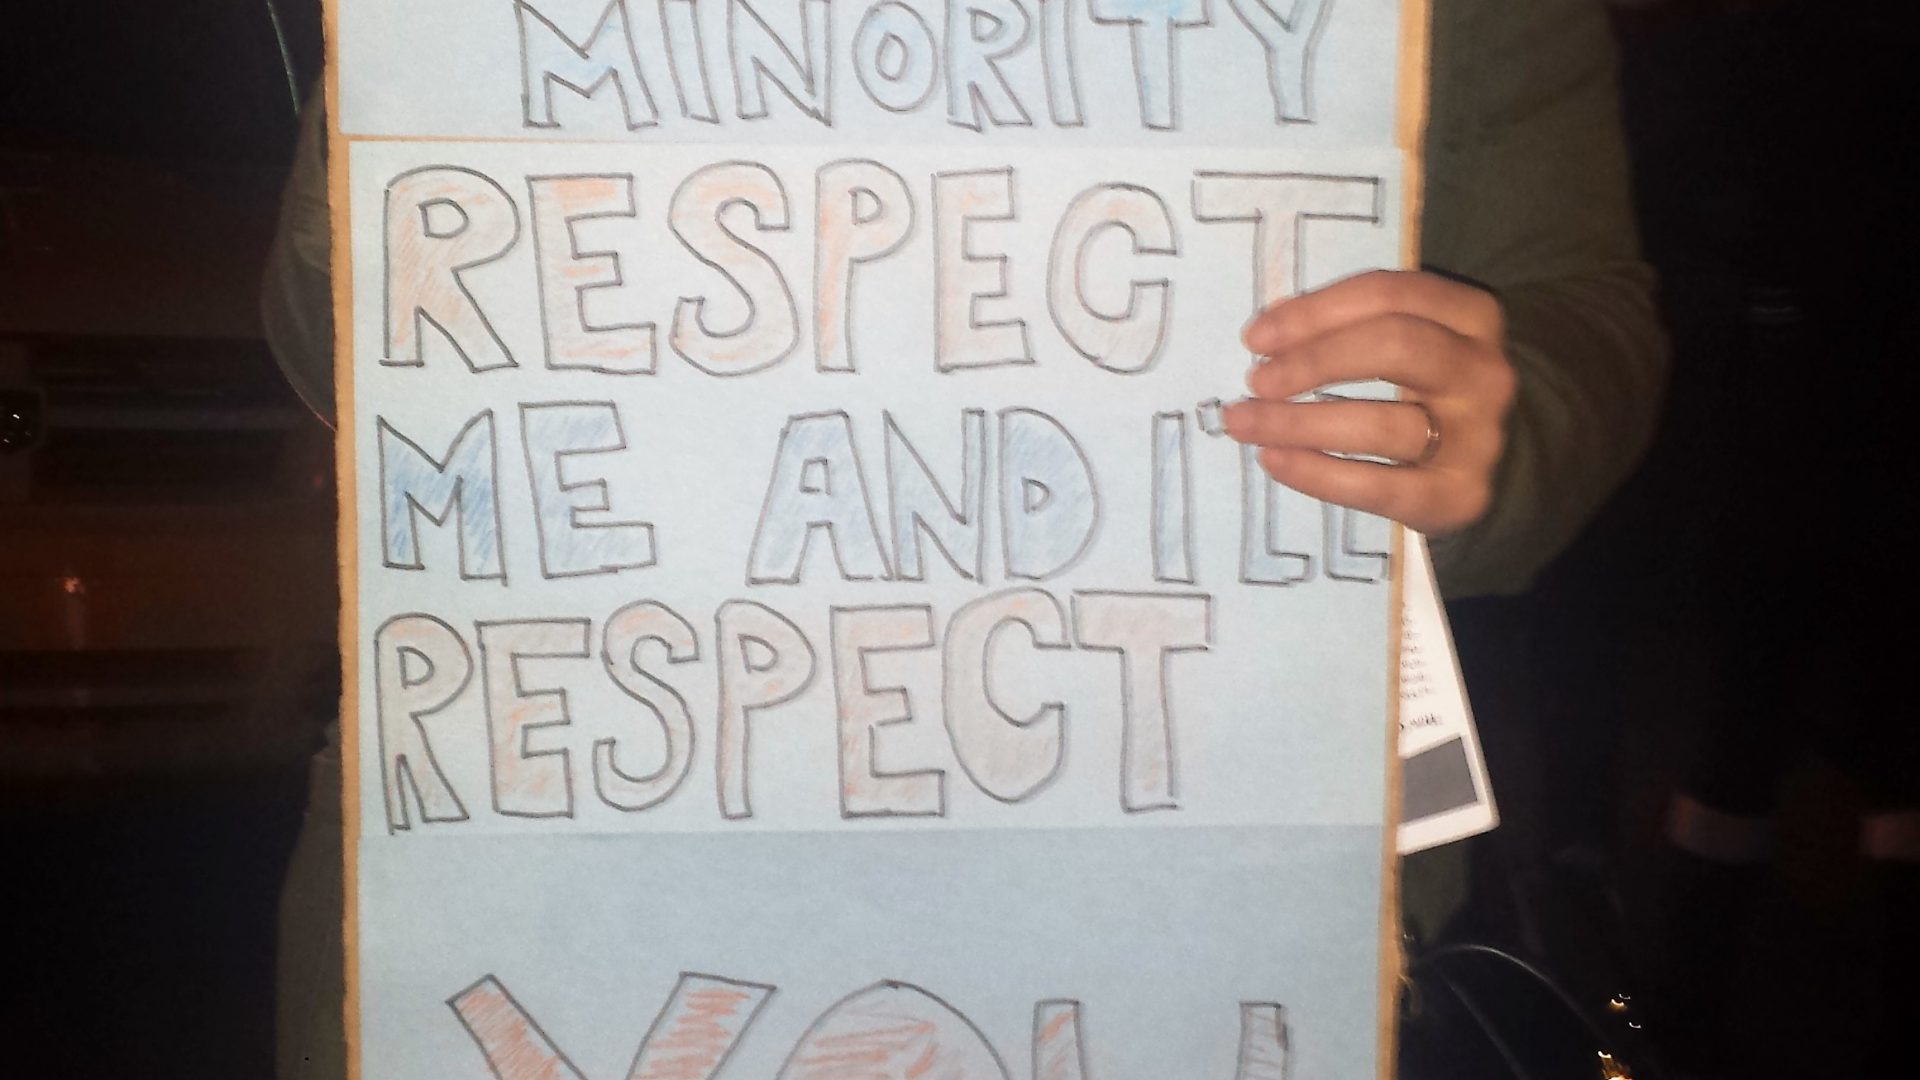 MINORITY
RESPECT
ME AND I'LL
RESPECT
YOU